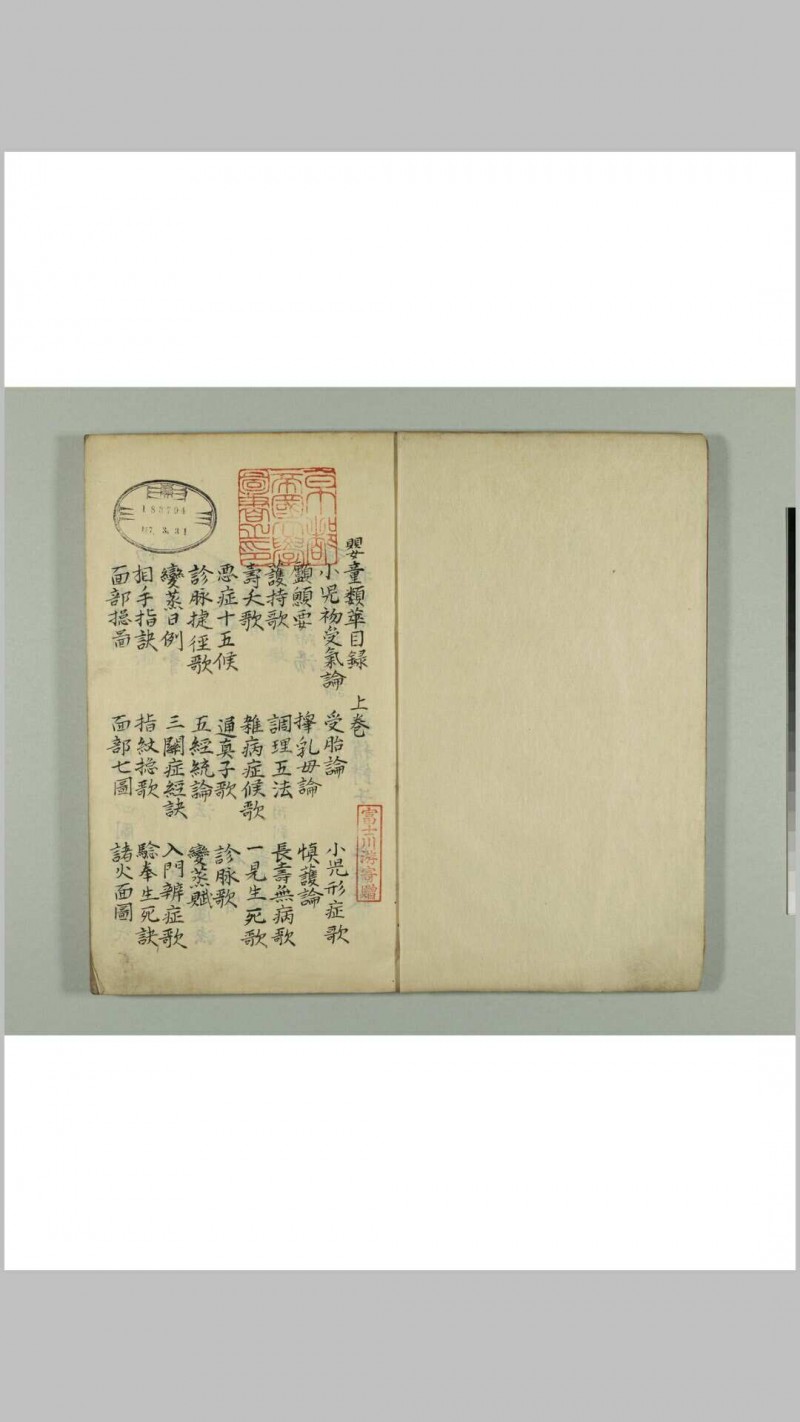 嬰童類萃目錄 上卷
小児初受氣論 受胎論 小児形症歌
顱顖要 擇乳母論 慎護論
護持歌 調理五法 長壽無病歌
壽夭歌 雜病症候歌 一見生死歌
悪症十五候 通真子歌 診脉歌
診脉捷徑歌 五經統論 變蒸賦
變蒸日例 三關症經訣 入門辨症歌
相手指訣 指紋摠歌 驗拳生死訣
面部摠啚 面部七圖 諸火面圖
京都帝國大學圖書之印
富士川游寄贈
183794